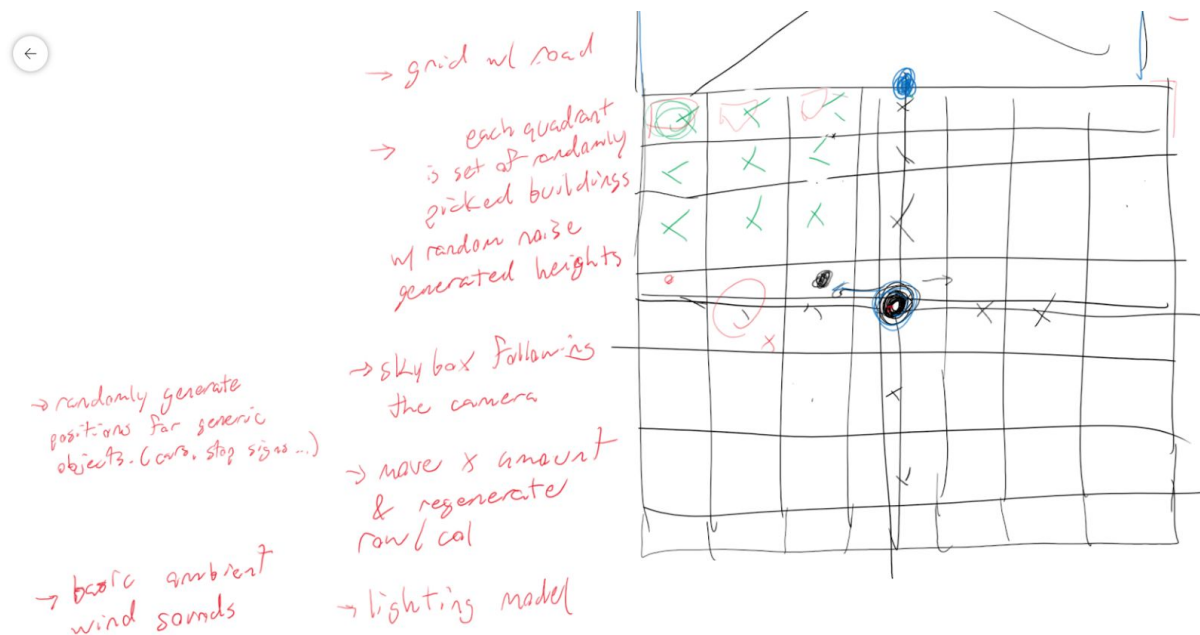 → grid w/ road
→ each quadrant
is set of randomly
picked buildings
w/ random noise
generated heights
→ skybox following
the camera
→ move x amount
& regenerate
row/col
→ lighting model
→ randomly generate
positions for generic
objects. (cars, stop signs...)
→ basic ambient
wind sounds